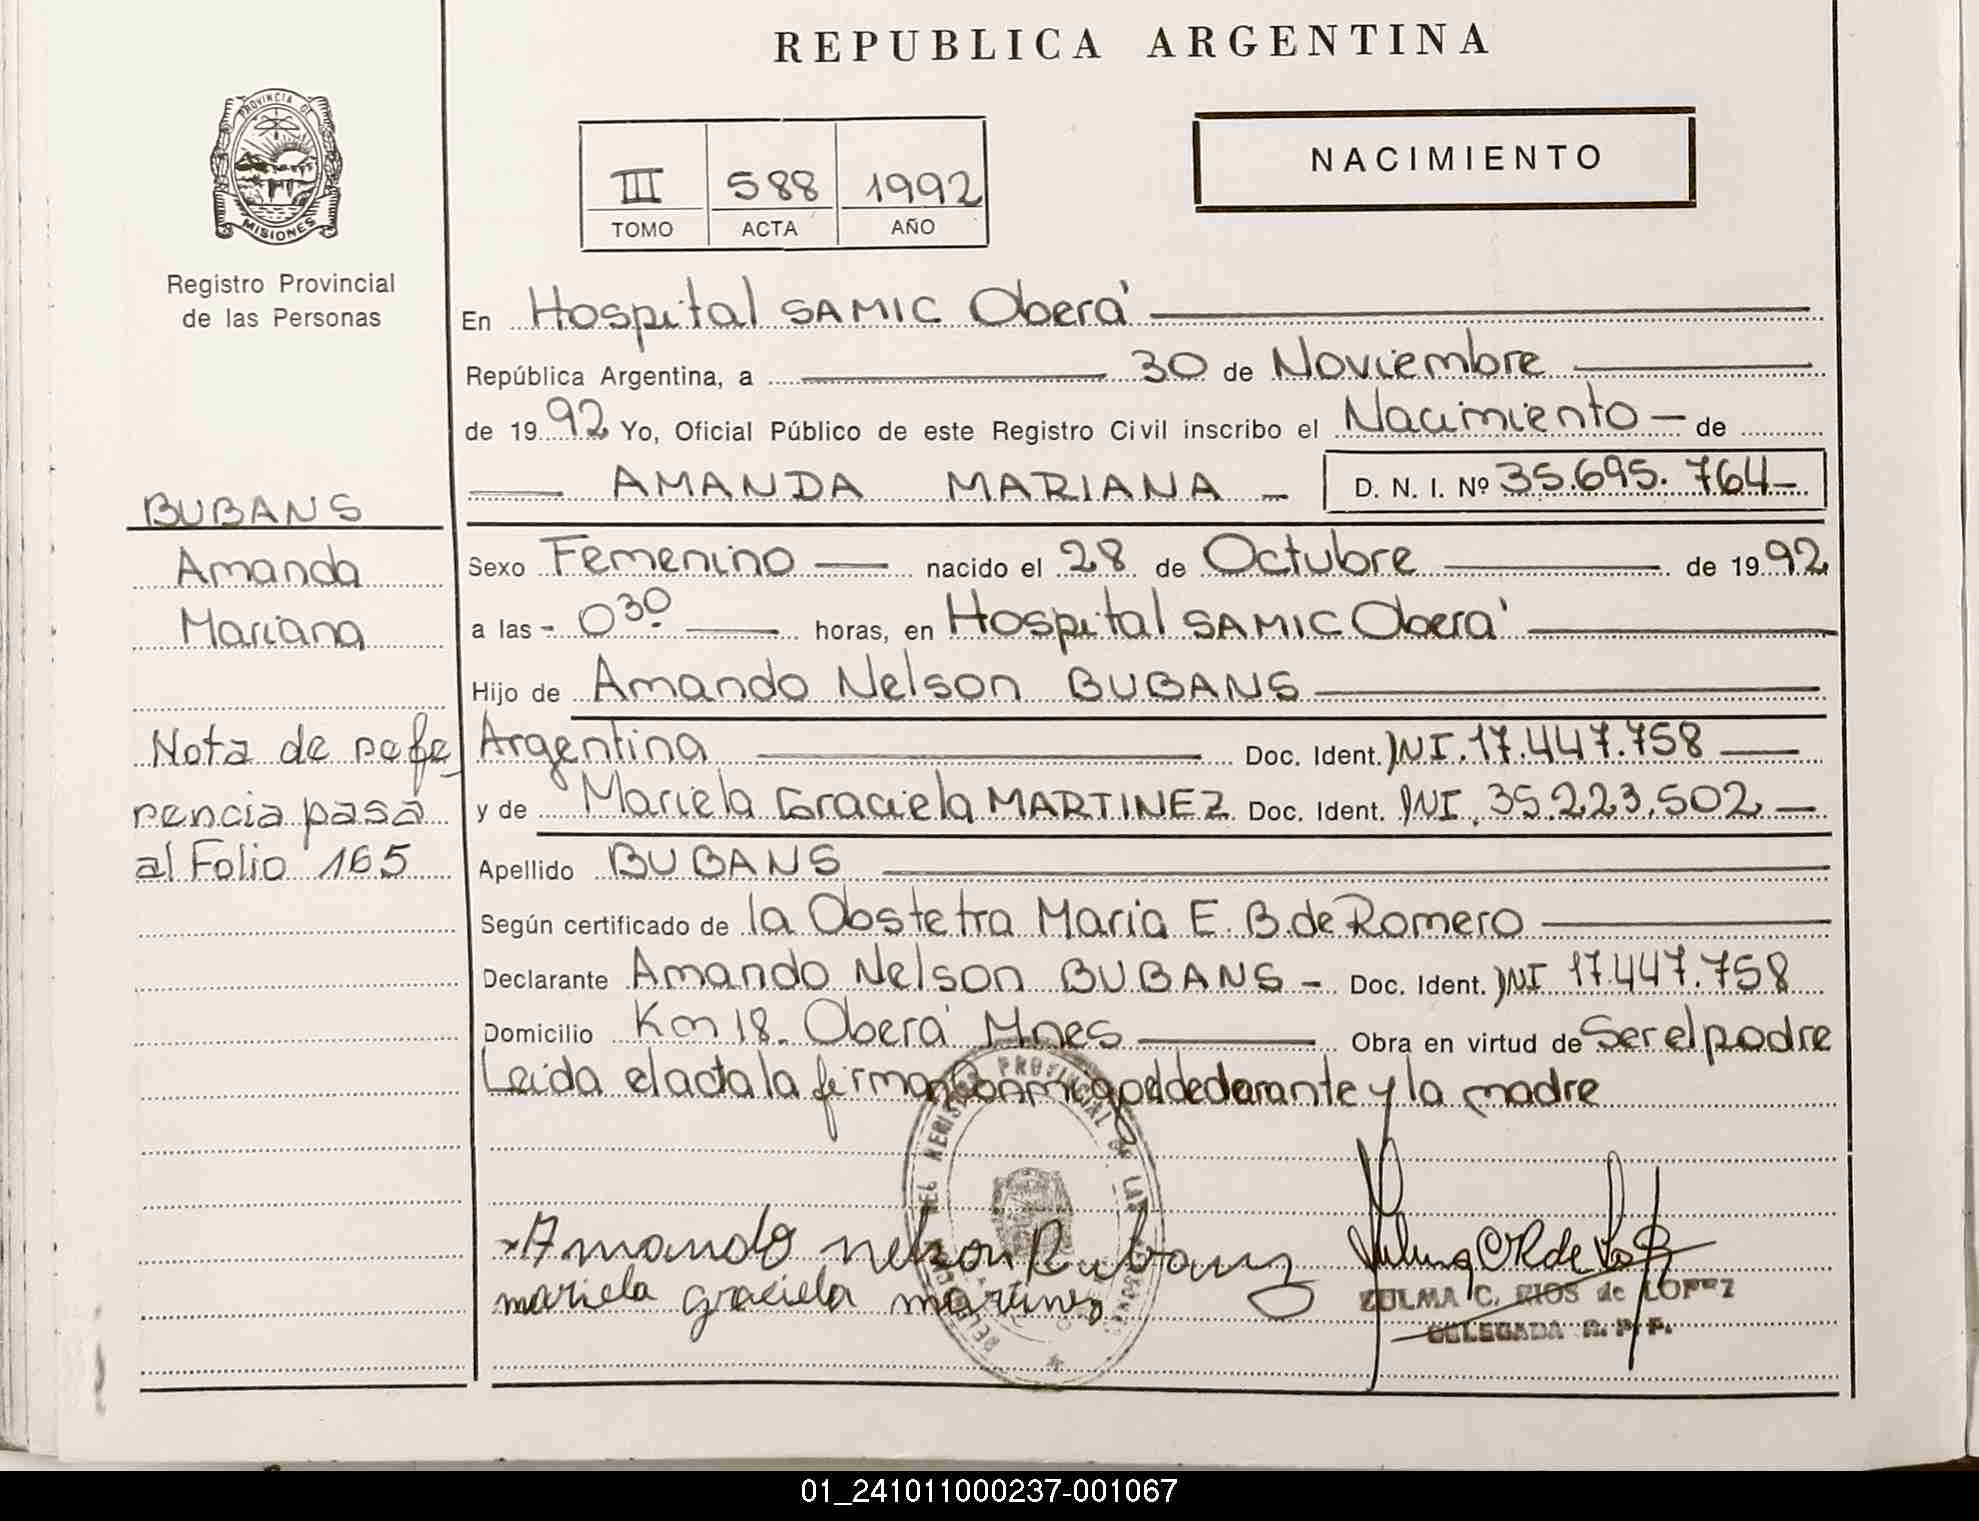 REPUBLICA ARGENTINA
PROVINCIA DE
MISIONES
Registro Provincial
de las Personas
NACIMIENTO
III 588 1992
TOMO ACTA AÑO
En Hospital SAMIC Oberá
República Argentina, a 30 de Noviembre
de 1992 Yo, Oficial Público de este Registro Civil inscribo el Nacimiento de
AMANDA MARIANA D. N. I. Nº 35.695.764
BUBANS
Amanda
Mariana
Sexo Femenino nacido el 28 de Octubre de 1992
a las 0 30 horas, en Hospital SAMIC Oberá
Hijo de Amando Nelson BUBANS
Argentina Doc. Ident. DNI. 17.447.758
y de Mariela Graciela MARTINEZ Doc. Ident. DNI. 35.223.502
Nota de refe_
rencia pasa
al Folio 165
Apellido BUBANS
Según certificado de la Obstetra Maria E. B. de Romero
Declarante Amando Nelson BUBANS - Doc. Ident. DNI 17.447.758
Domicilio Km 18. Oberá Mnes Obra en virtud de Ser el padre
Leida el acta la firman conmigo el declarante y la madre
REGISTRO PROVINCIAL DE LAS
Amando nelson Bubans
mariela graciela martinez
ZULMA C. RIOS de LOPEZ
DELEGADA R. P. P.
01_241011000237-001067